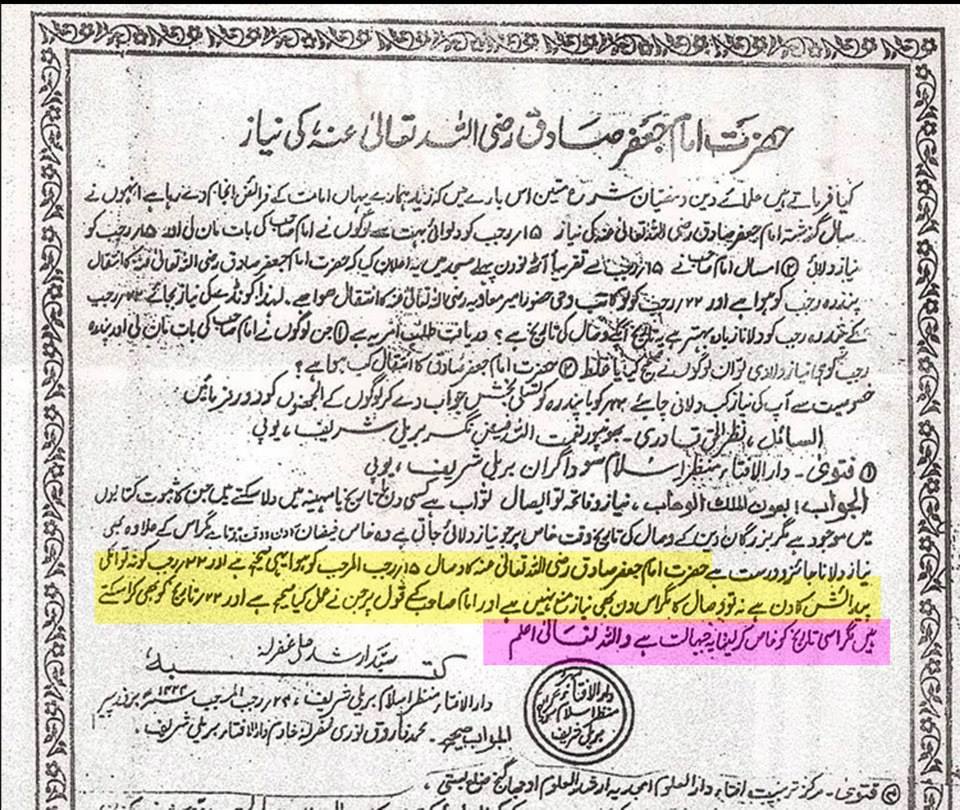 حضرت امام جعفر صادق رضی اللہ تعالیٰ عنہ کی نیاز
کیا فرماتے ہیں علمائے دین و مفتیان شرع متین اس بارے میں کہ زید ہمارے یہاں امامت کے فرائض انجام دے رہا ہے انہوں نے
سال گزشتہ امام جعفر صادق رضی اللہ تعالیٰ عنہ کی نیاز ۱۵؍رجب کو دلوائی بہت سے لوگوں نے امام صاحب کی بات مان لی اور ۱۵؍رجب کو
نیاز دلائی ② امسال امام صاحب نے ۱۵؍رجب سے تقریباً آٹھ نو دن پہلے مسجد میں یہ اعلان کیا کہ حضرت امام جعفر صادق رضی اللہ تعالیٰ عنہ کا انتقال
پندرہ رجب کو ہوا ہے اور ۲۲؍رجب کو تو کاتب وحی حضور امیر معاویہ رضی اللہ تعالیٰ عنہ کا انتقال ہوا ہے۔ لہذا کونڈے کی نیاز بجائے ۲۲؍رجب
کے پندرہ رجب کو دلانا زیادہ بہتر ہے یہ تاریخ آپکے وصال کی تاریخ ہے؟ دریافت طلب امر یہ ہے ① جن لوگوں نے امام صاحب کی بات مان لی اور پندرہ
رجب کو ہی نیاز دلادی تو ان لوگوں نے صحیح کیا یا غلط ② حضرت امام جعفر صادق کا انتقال کب ہوا ہے؟
خصوصیت سے آپ کی نیاز کب دلائی جائے کو یا پندرہ کو تسلی بخش جواب دے کر لوگوں کے الجھنوں کو دور فرمائیں
السائل، نظر الٰہی قادری۔ بھوجپور نعمت اللہ نگر بریلی شریف، یوپی
① فتویٰ۔ دارالافتاء منظر اسلام سوداگران بریلی شریف، یوپی
الجواب! بعون الملک الوھاب، نیاز و فاتحہ تو ایصال ثواب ہے کسی دن تاریخ یا مہینہ میں دلا سکتے ہیں جن کا ثبوت کتابوں
میں موجود ہے مگر بزرگان دین کے وصال کی تاریخ وقت خاص پر جو نیاز دلائی جاتی ہے وہ خاص فیضان کا دن و وقت ہوتا ہے مگر اس کے علاوہ بھی
نیاز دلانا جائز و درست ہے حضرت امام جعفر صادق رضی اللہ تعالیٰ عنہ کا وصال ۱۵؍رجب المرجب کو ہوا یہی صحیح ہے اور ۲۲؍رجب کو نہ تو انکی
پیدائش کا دن ہے نہ تو وصال کا مگر اس دن بھی نیاز منع نہیں ہے اور امام صاحب کے قول پر جن نے عمل کیا صحیح ہے اور ۲۲؍تاریخ کو بھی کرا سکتے
ہیں مگر اسی تاریخ کو خاص کر لینا یہ جہالت ہے واللہ تعالیٰ اعلم
کتبہ سید ارشد علی غفرلہ
دارالافتاء منظر اسلام بریلی شریف، ۲۴؍رجب المرجب ۱۴۲۲ بروز پیر
الجواب صحیح۔ محمد فاروق نوری غفرلہ خادم دارالافتاء بریلی شریف۔
دارالافتاء
منظر اسلام
بریلی شریف
② فتویٰ۔ مرکز تربیت افتاء دارالعلوم امجدیہ ارشد العلوم اوجھا گنج ضلع بستی،